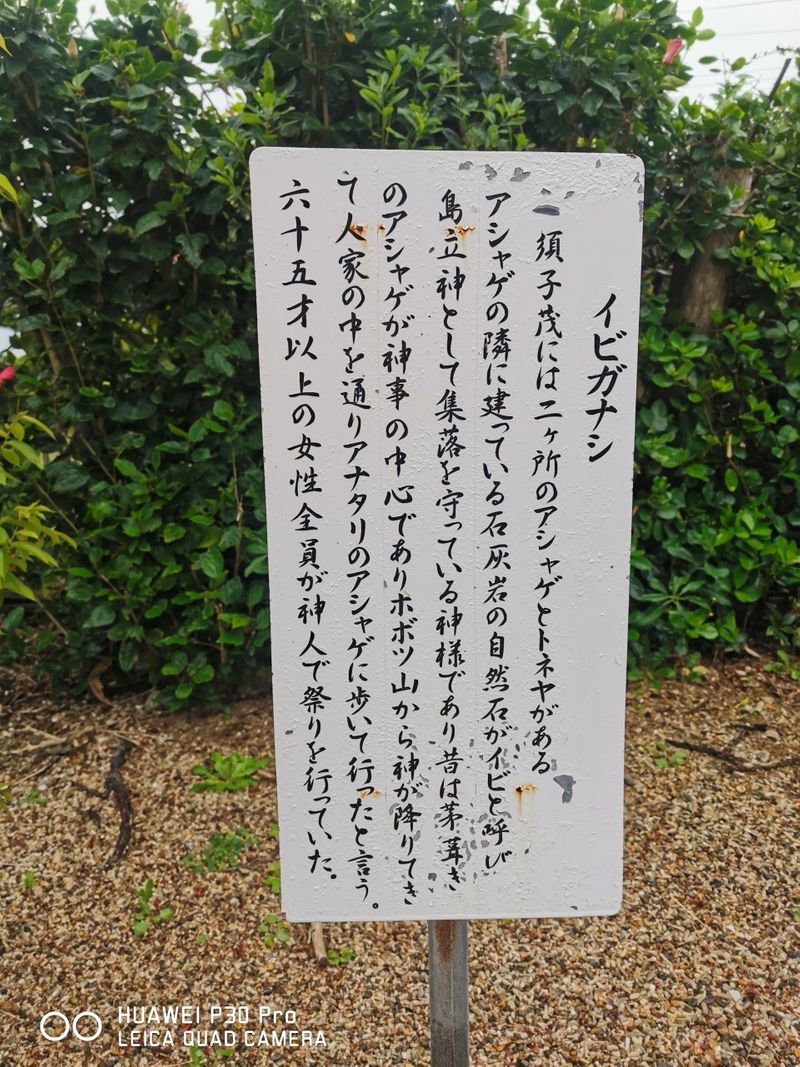 イビガナシ
須子茂には二ヶ所のアシャゲとトネヤがある
アシャゲの隣に建っている石灰岩の自然石がイビと呼び
島立神として集落を守っている神様であり昔は茅葺き
のアシャゲが神事の中心でありホボツ山から神が降りてき
て人家の中を通りアナタリのアシャゲに歩いて行ったと言う。
六十五才以上の女性全員が神人で祭りを行っていた。
HUAWEI P30 Pro
LEICA QUAD CAMERA